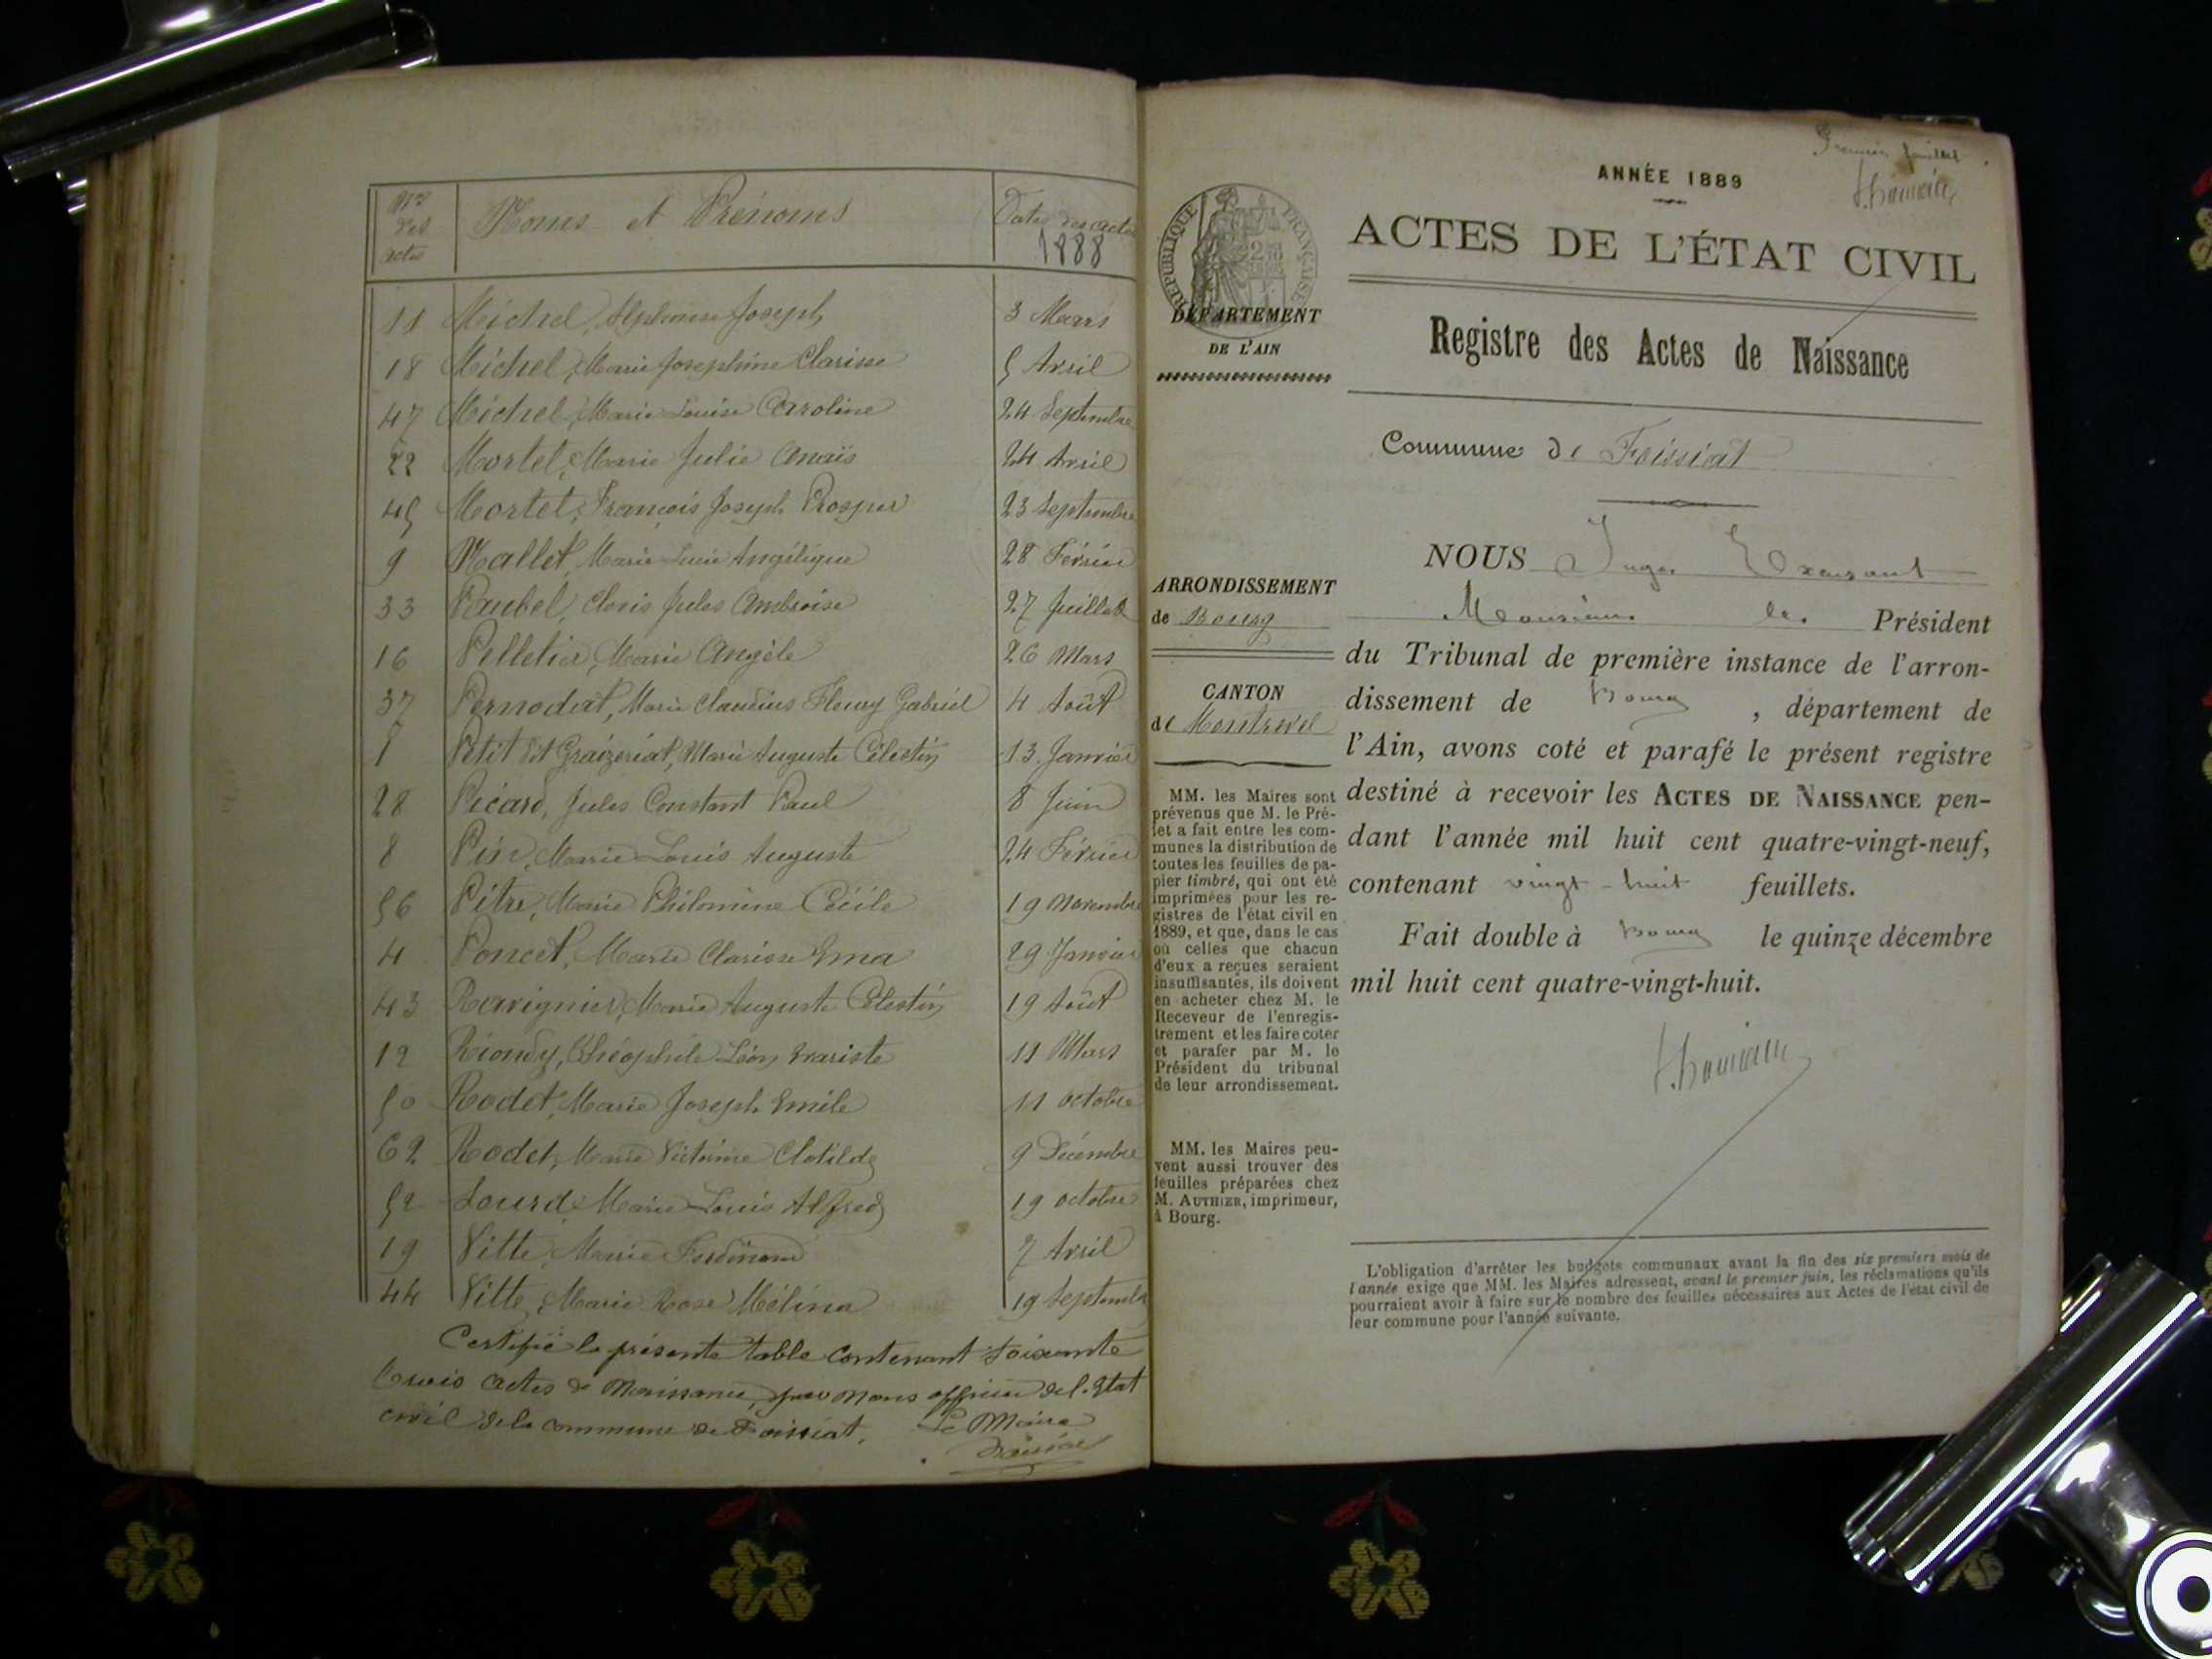 Nos des actes
Noms et Prénoms
Dates des actes
1888
11 Michel, Alphonse Joseph 3 Mars
18 Michel, Marie Josephine Clarisse 5 Avril
47 Michel, Marie Louise Caroline 24 Septembre
22 Mortel, Marie Julie Anaïs 24 Avril
45 Mortel, François Joseph Prosper 23 Septembre
9 Nallet, Marie Lucie Angélique 28 Février
33 Paubel, Jules Ambroise 27 Juillet
16 Pelletier, Marie Angèle 26 Mars
37 Pernodat, Marie Claudius Fleury Gabriel 4 Août
1 Petit dit Graizeriat, Marie Auguste Célestin 13 Janvier
28 Picard, Jules Constant Paul 8 Juin
8 Marie Louis Auguste 24 Février
56 Pitre, Marie Philomène Cécile 19 Novembre
4 Poncet, Marie Clarisse Ema 29 Janvier
43 Ravignier, Marie Auguste Célestin 19 Août
12 Riondy, Théophile Léon Evariste 11 Mars
50 Rodet, Marie Joseph Emile 11 octobre
62 Rodet, Marie Victorine Clotilde 9 Décembre
52 Sourd, Marie Louis Alfred 19 octobre
19 Vitte, Marie Ferdinand 7 Avril
44 Vitte, Marie Rose Mélina 19 Septembre
Certifié la présente table contenant soixante
trois actes de Naissance, par nous officier de l'Etat
civil de la commune de Foissiat. Le Maire
Premier feuillet
ANNÉE 1889
ACTES DE L'ÉTAT CIVIL
Registre des Actes de Naissance
RÉPUBLIQUE FRANÇAISE
DÉPARTEMENT
DE L'AIN
Commune de Foissiat
ARRONDISSEMENT
de Bourg
CANTON
de Montrevel
MM. les Maires sont
prévenus que M. le Pré-
fet a fait entre les com-
munes la distribution de
toutes les feuilles de pa-
pier timbré, qui ont été
imprimées pour les re-
gistres de l'état civil en
1889, et que, dans le cas
où celles que chacun
d'eux a reçues seraient
insuffisantes, ils doivent
en acheter chez M. le
Receveur de l'enregis-
trement et les faire coter
et parafer par M. le
Président du tribunal
de leur arrondissement.
MM. les Maires peu-
vent aussi trouver des
feuilles préparées chez
M. AUTHIER, imprimeur,
à Bourg.
NOUS Juge
Monsieur le Président
du Tribunal de première instance de l'arron-
dissement de Bourg, département de
l'Ain, avons coté et parafé le présent registre
destiné à recevoir les ACTES DE NAISSANCE pen-
dant l'année mil huit cent quatre-vingt-neuf,
contenant vingt-huit feuillets.
Fait double à Bourg le quinze décembre
mil huit cent quatre-vingt-huit.
L'obligation d'arrêter les budgets communaux avant la fin des six premiers mois de
l'année exige que MM. les Maires adressent, avant le premier juin, les réclamations qu'ils
pourraient avoir à faire sur le nombre des feuilles nécessaires aux Actes de l'état civil de
leur commune pour l'année suivante.